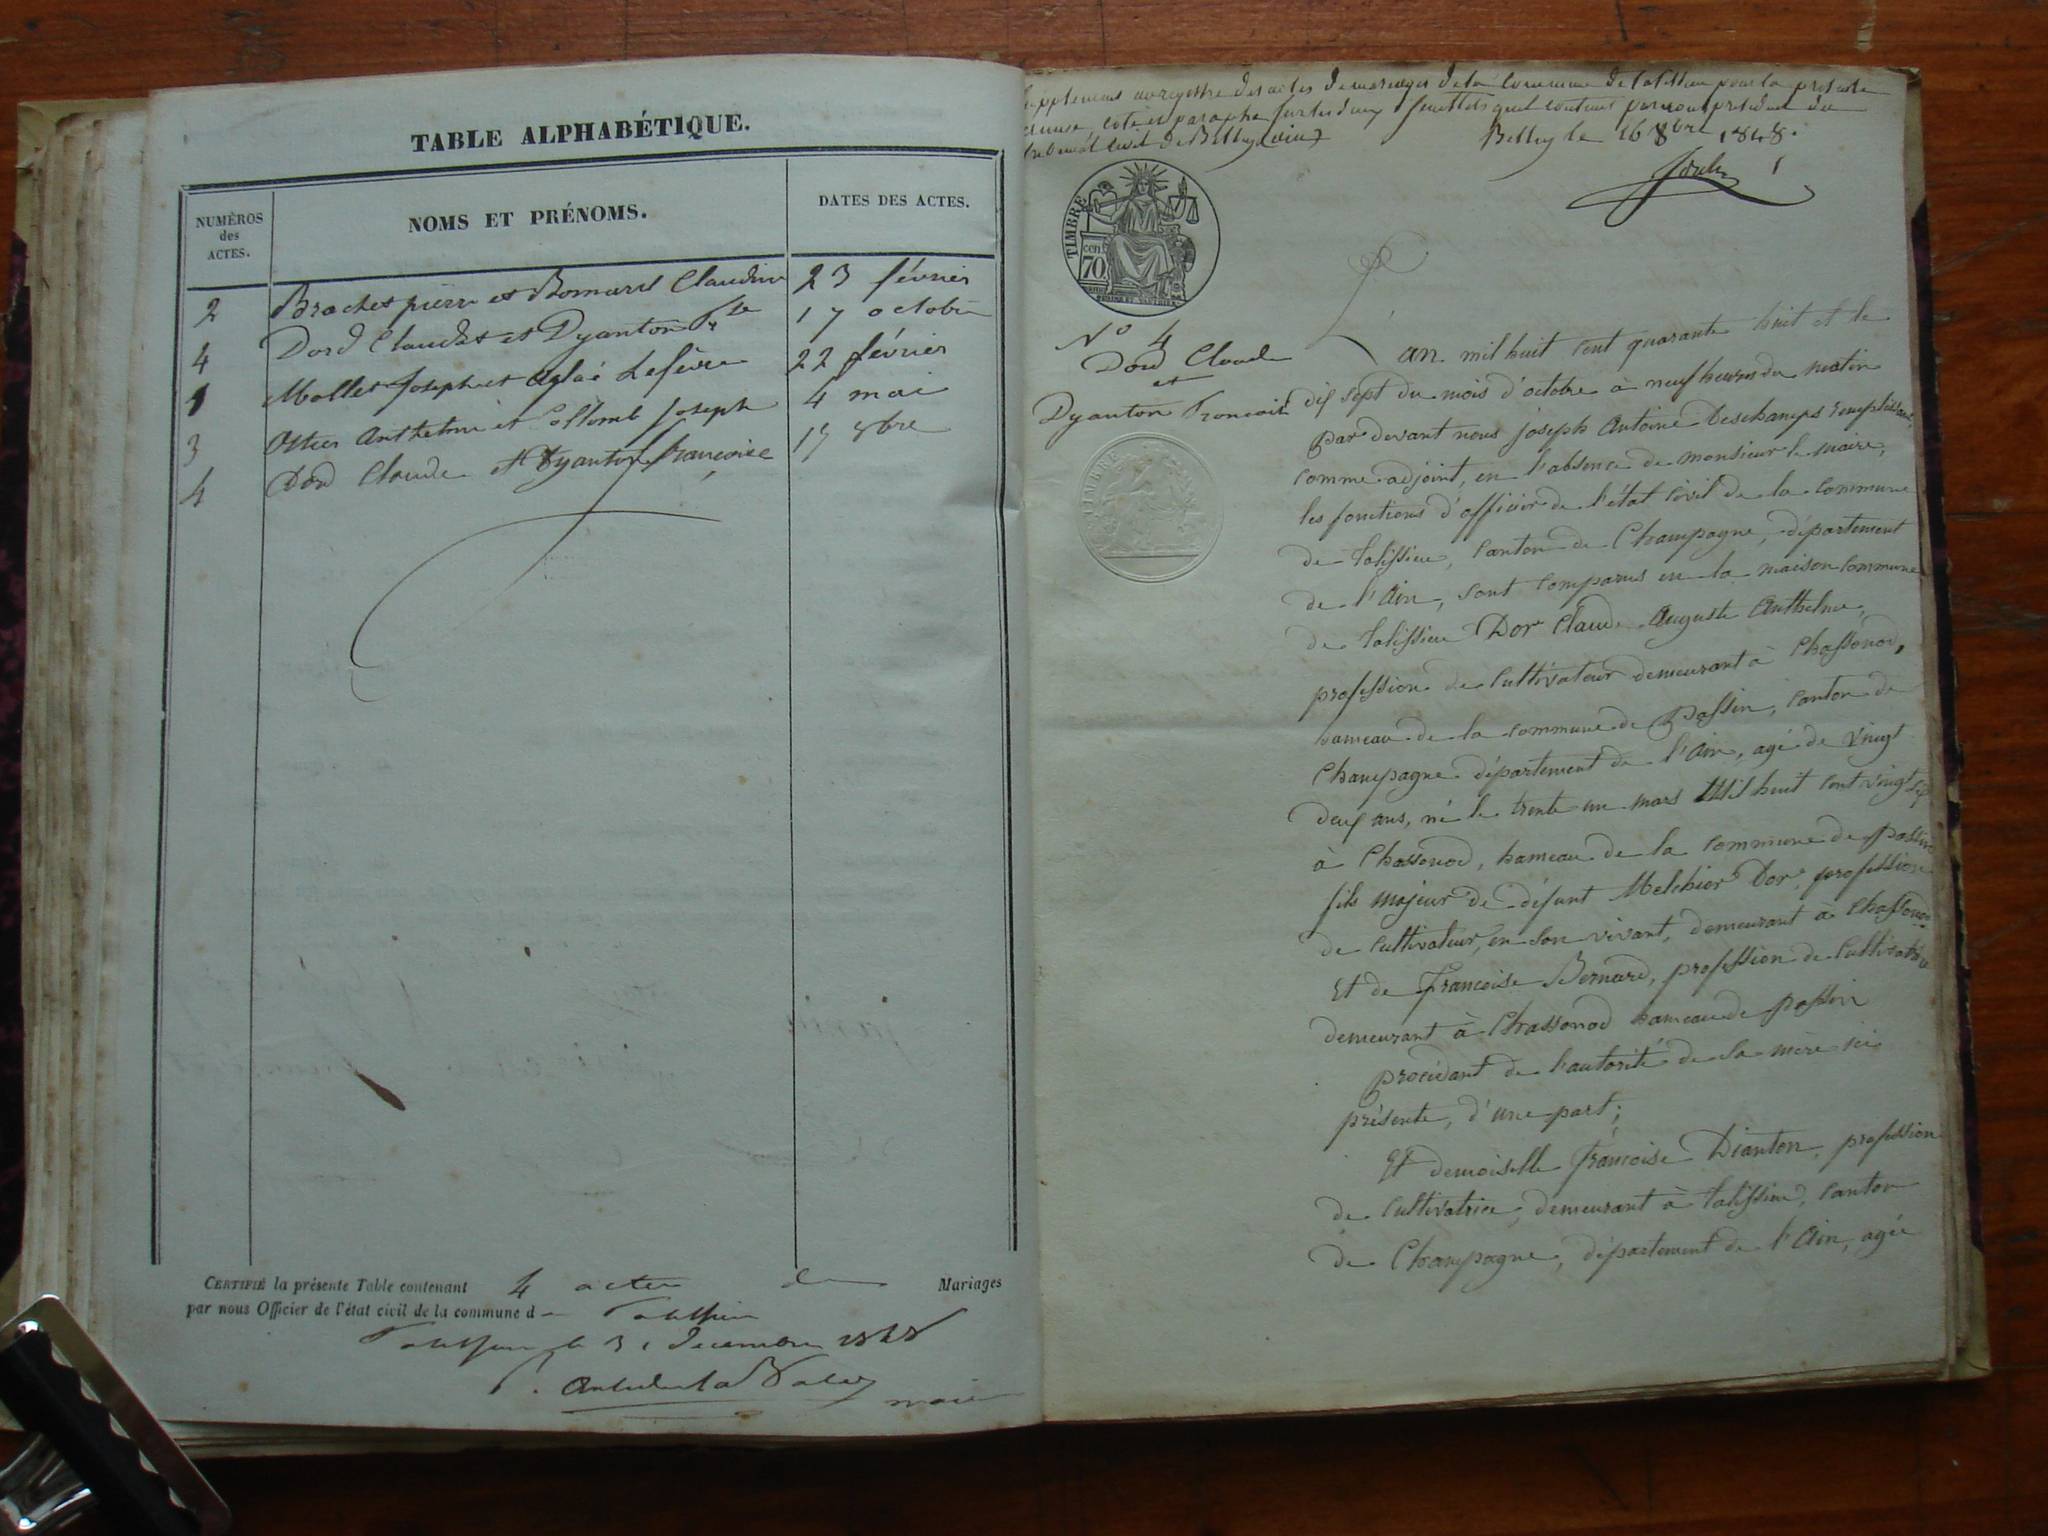 TABLE ALPHABÉTIQUE.
NUMÉROS des ACTES.
NOMS ET PRÉNOMS.
DATES DES ACTES.
2 Brochet pierre et Bomard Claudine 23 février
4 Dord Claude et Dyanton Fse 17 octobre
1 Mollet Joseph et Aglaé Lefèvre 22 février
3 Ottier Anthelme et Collomb Joseph 4 mai
4 Dord Claude et Dyanton françoise 17 8bre
CERTIFIÉ la présente Table contenant 4 actes de Mariages
par nous Officier de l'état civil de la commune d Talissieu
Talissieu le 31 Decembre 1848
maire
Supplement au registre des actes de mariages de la Commune de Talissieu pour la presente
annuée, coté et paraphé sur les deux feuillets qu'il contient par nous président du
tribunal civil de Belley (Ain)
Belley le 16 8bre 1848.
1
TIMBRE
70 cen.
N° 4
Dord Claude
et
Dyanton Françoise
TIMBRE
L'an mil huit cent quarante huit et le
dix sept du mois d'octobre à neuf heures du matin
par devant nous joseph Antoine Deschamps remplissant,
comme adjoint, en l'absence de monsieur le maire,
les fonctions d'officier de l'état civil de la commune
de Talissieu, canton de Champagne, département
de l'Ain, sont comparus en la maison commune
de Talissieu Dor Claude Auguste Anthelme,
profession de cultivateur demeurant à Chassonod,
hameau de la commune de Passin, canton de
Champagne département de l'Ain, agé de vingt
deux ans, né le trente un mars Mil huit cent vingt six
à Chassonod, hameau de la commune de passin
fils majeur de défunt Melchior Dor, profession
de cultivateur, en son vivant, demeurant à Chassonod
Et de Francoise Bernard, profession de cultivatrice
demeurant à Chassonod hameau de passin
procédant de l'autorité de sa mère ici
présente, d'une part;
Et demoiselle françoise Dianton, profession
de cultivatrice, demeurant à Talissieu, canton
de Champagne, département de l'Ain, agée